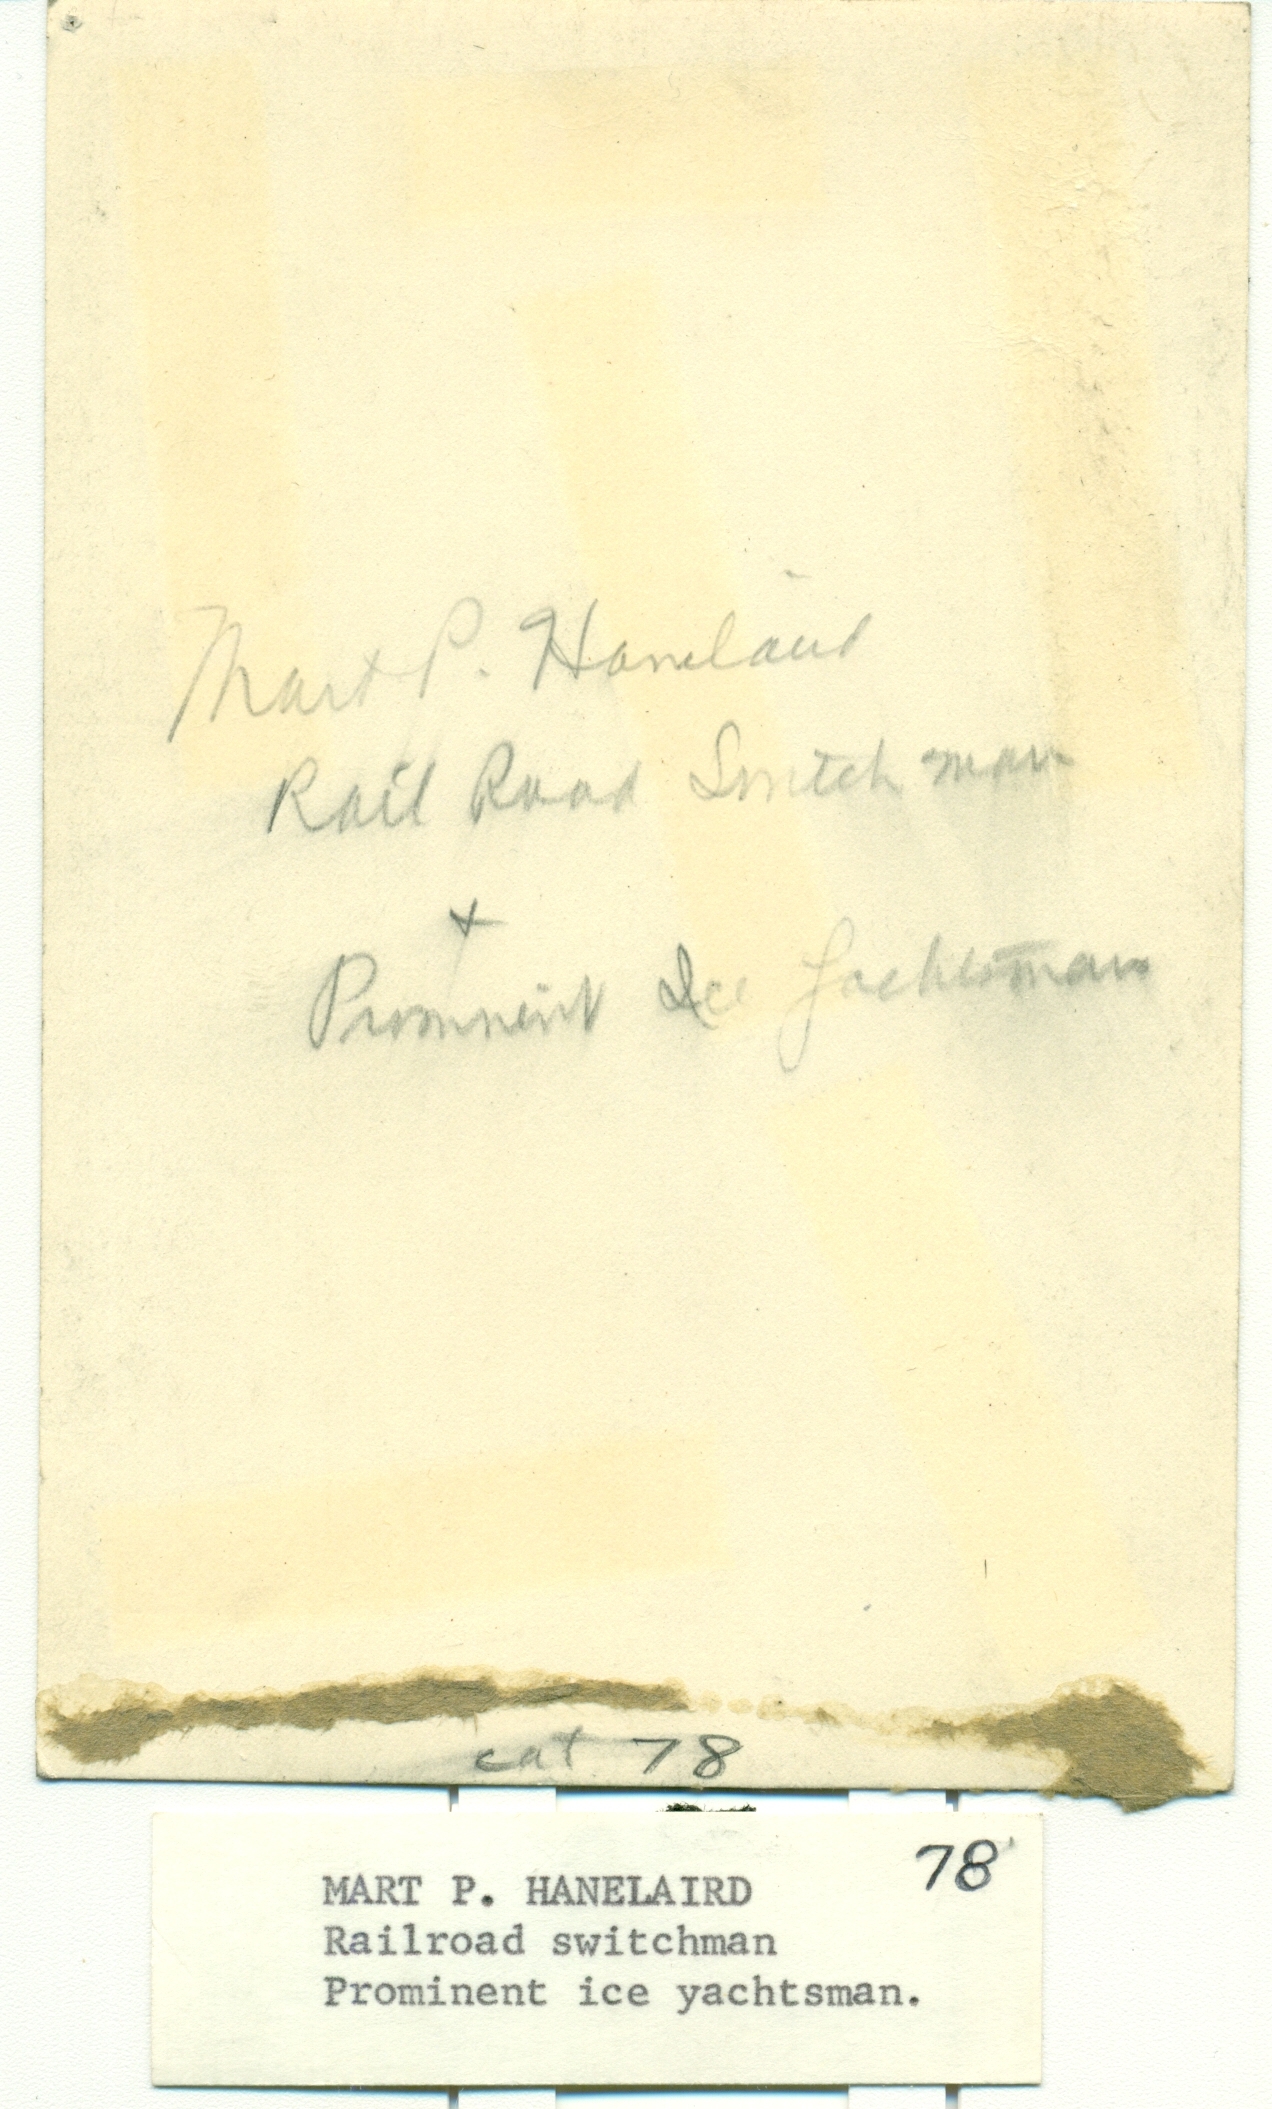 Mart P. Hanelaird
Rail Road Switch man
+
Prominent Ice Yachtsman
cat 78
78
MART P. HANELAIRD
Railroad switchman
Prominent ice yachtsman.